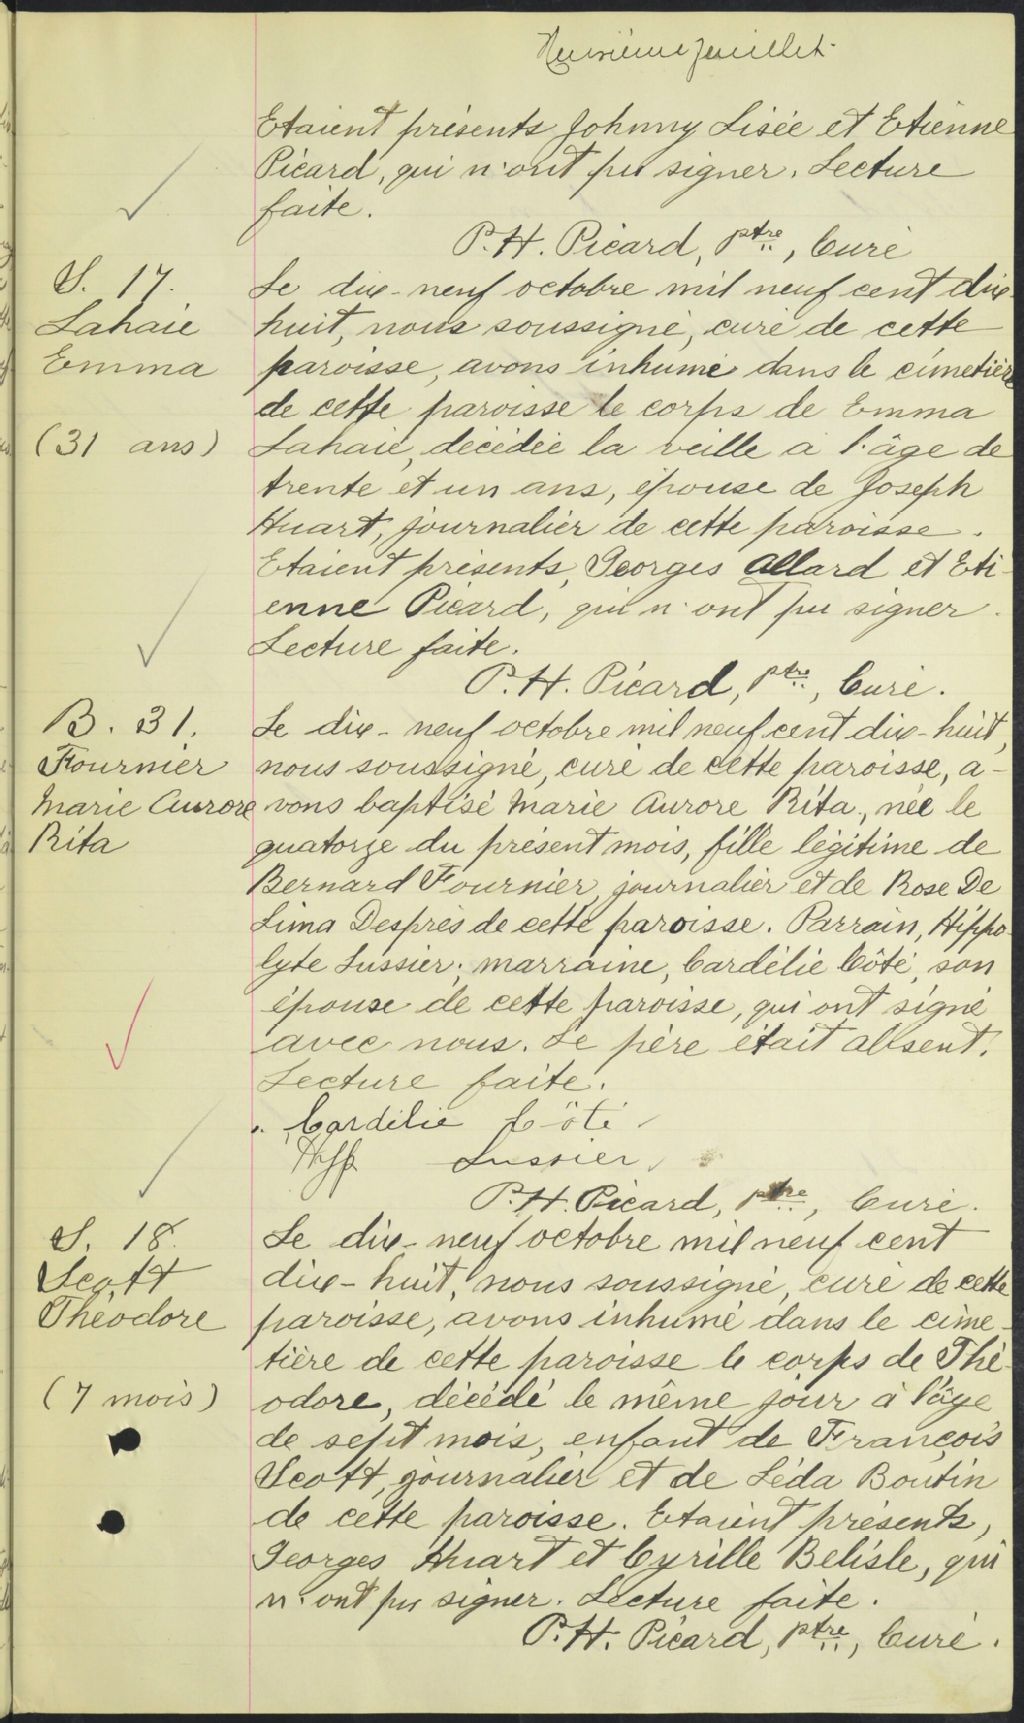 Neuvième feuillet.
Etaient présents Johnny Lisée et Etienne
Picard, qui n'ont pu signer. Lecture
faite.
P. H. Picard, ptre, Curé
S. 17.
Lahaie
Emma
(31 ans)
Le dix-neuf octobre mil neuf cent dix-
huit, nous soussigné, curé de cette
paroisse, avons inhumé dans le cimetière
de cette paroisse le corps de Emma
Lahaie, décédée la veille à l'âge de
trente et un ans, épouse de Joseph
Huart, journalier de cette paroisse.
Etaient présents, Georges Allard et Eti-
enne Picard, qui n'ont pu signer.
Lecture faite.
P. H. Picard, ptre, Curé.
B. 31.
Fournier
Marie Aurore
Rita
Le dix-neuf octobre mil neuf cent dix-huit,
nous soussigné, curé de cette paroisse, a-
vons baptisé Marie Aurore Rita, née le
quatorze du présent mois, fille légitime de
Bernard Fournier, journalier et de Rose De
Lima Desprès de cette paroisse. Parrain, Hippo-
lyte Lussier; marraine, Cardélie Côté, son
épouse de cette paroisse, qui ont signé
avec nous. Le père était absent.
Lecture faite.
Cardélie Côté
Hyp Lussier
P. H. Picard, ptre, Curé.
S. 18.
Scott
Théodore
(7 mois)
Le dix-neuf octobre mil neuf cent
dix-huit, nous soussigné, curé de cette
paroisse, avons inhumé dans le cime-
tière de cette paroisse le corps de Thé-
odore, décédé le même jour à l'âge
de sept mois, enfant de François
Scott, journalier et de Léda Boutin
de cette paroisse. Etaient présents,
Georges Huart et Cyrille Belisle, qui
n'ont pu signer. Lecture faite.
P. H. Picard, ptre, Curé.